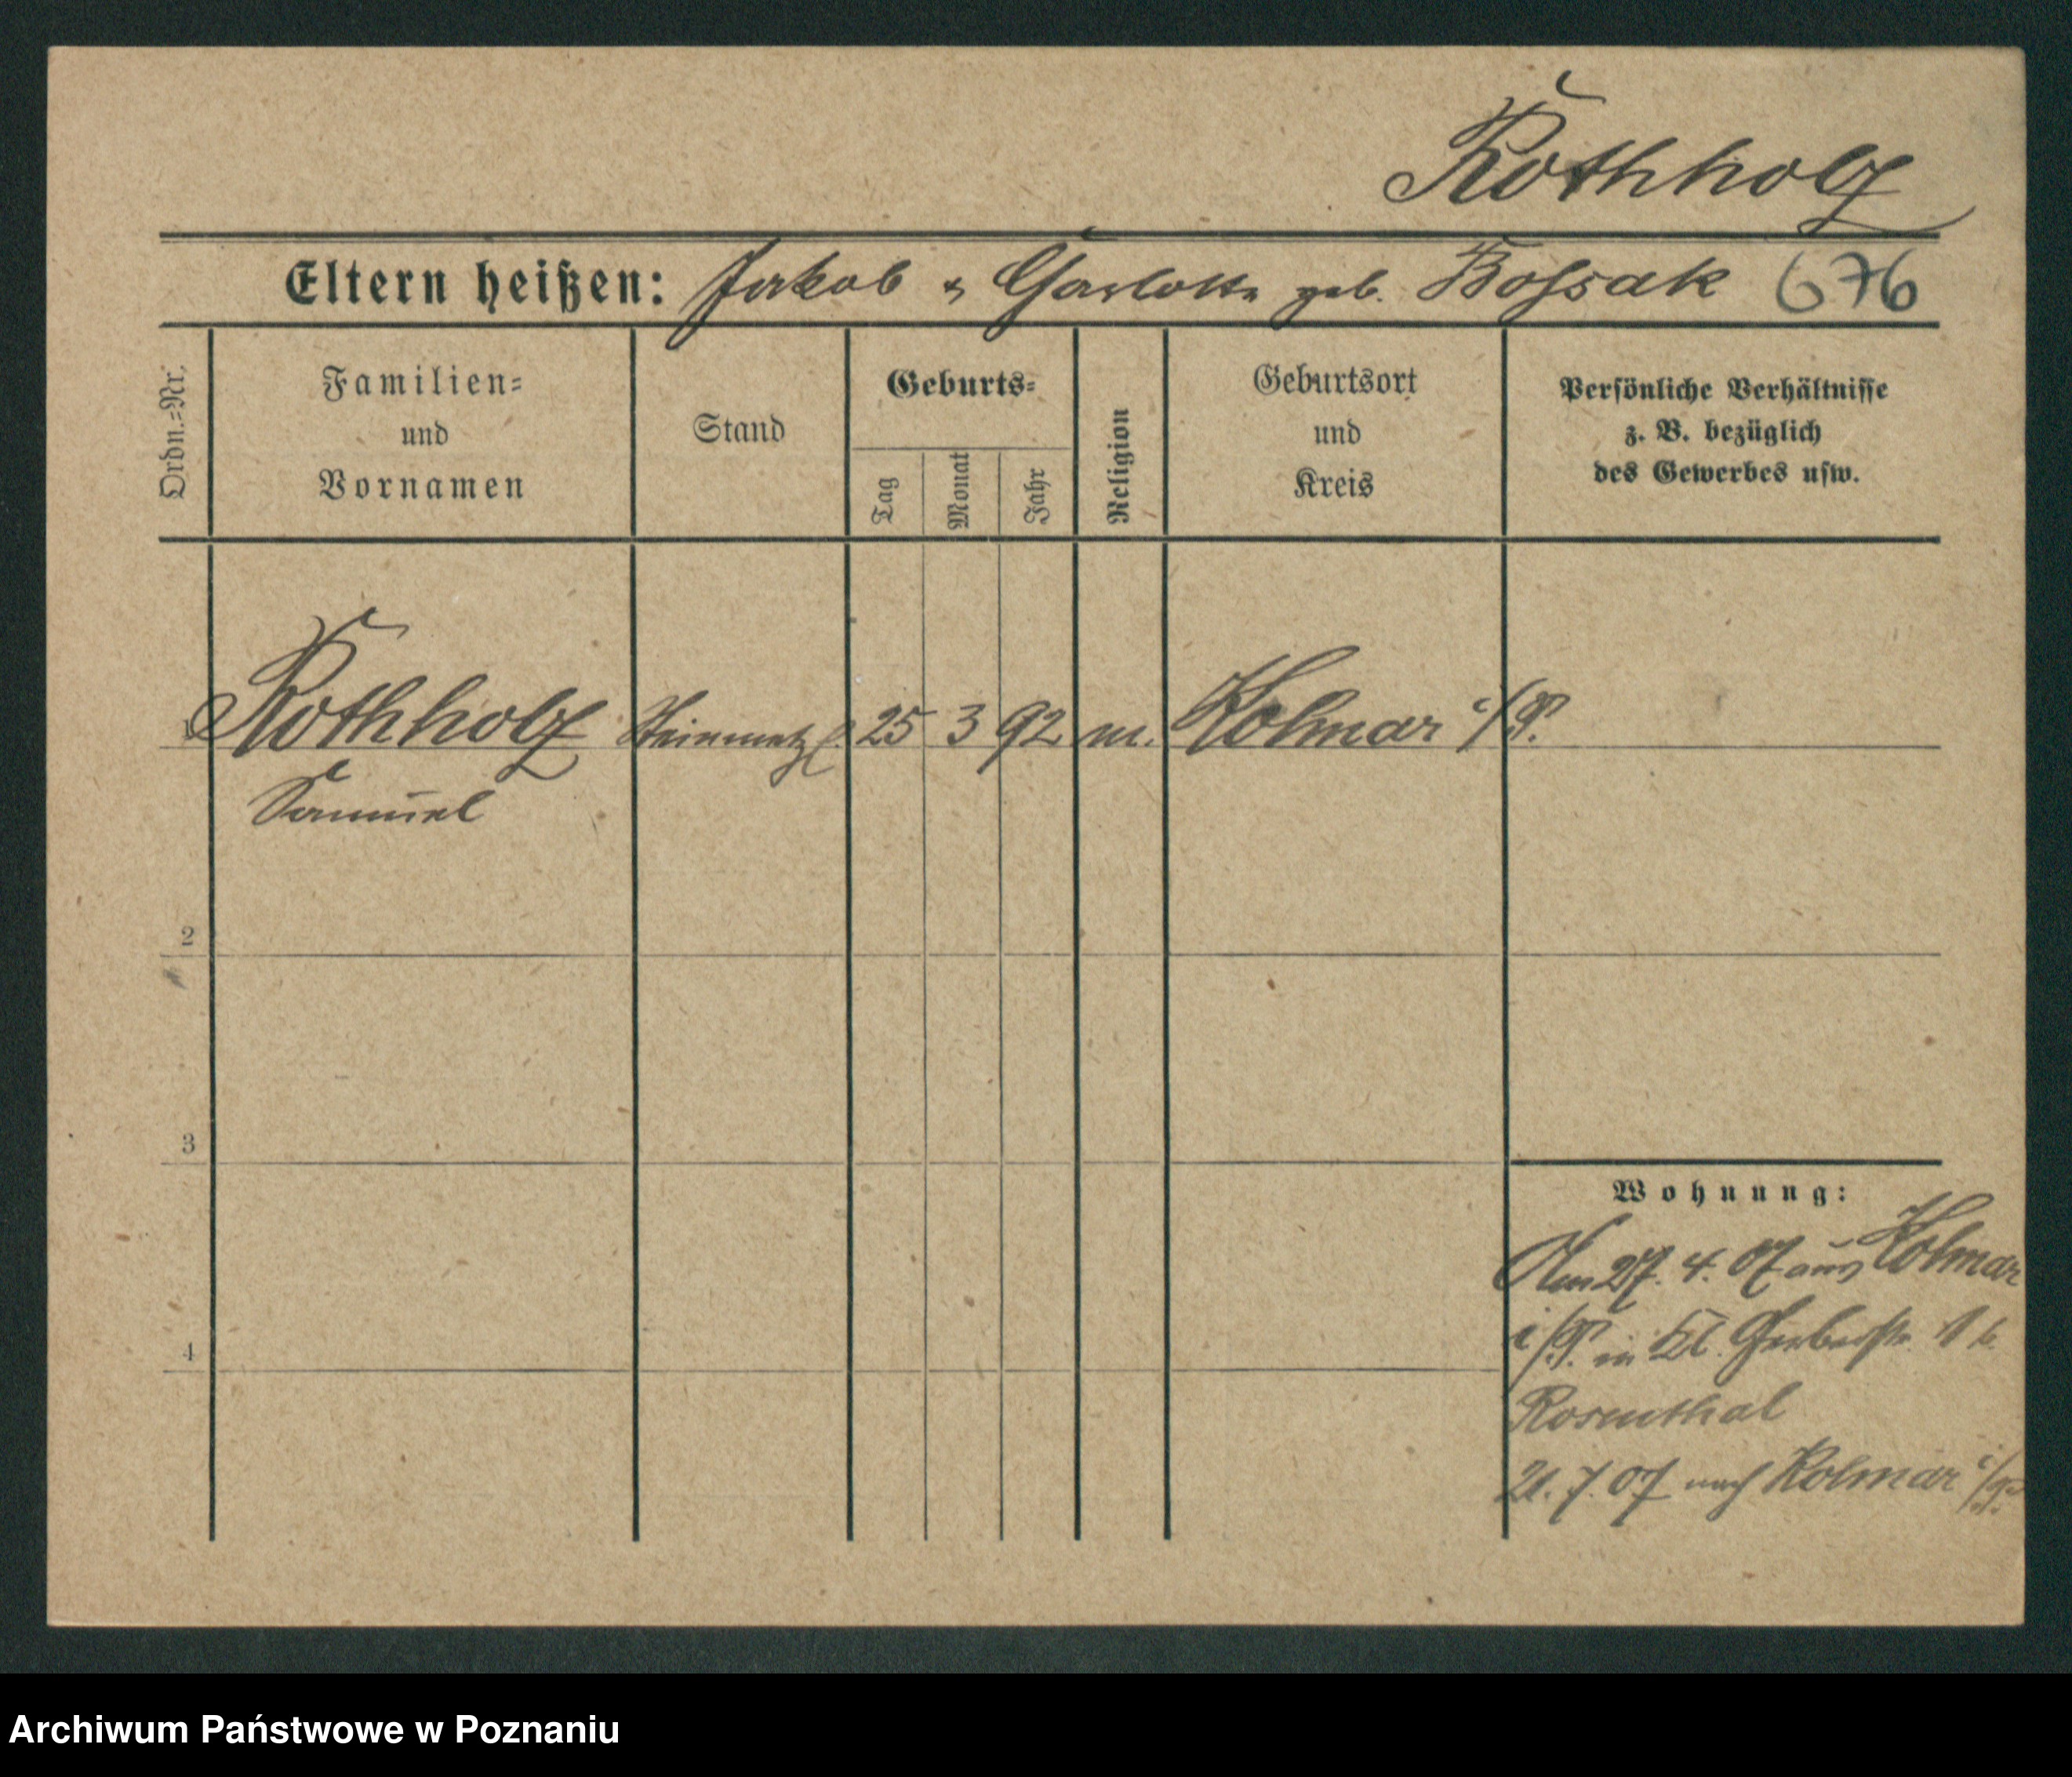 Rothholz
Eltern heißen: Jakob & Charlotte geb. Bossak 676
Ordn.=Nr.
Familien=
und
Vornamen
Stand
Geburts=
Tag
Monat
Jahr
Religion
Geburtsort
und
Kreis
Persönliche Verhältnisse
z. B. bezüglich
des Gewerbes usw.
1 Rothholz Steinmetzl. 25 3 92 m. Kolmar i/P.
Samuel
2
3
4
Wohnung:
Am 27. 4. 07 aus Kolmar
i/P. in Kl. Gerberstr. 1 b.
Rosenthal
21. 7. 07 nach Kolmar i/P.
Archiwum Państwowe w Poznaniu